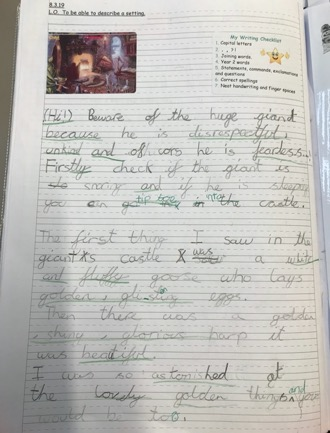 8.3.19
L.O. To be able to describe a setting.
My Writing Checklist
1. Capital letters
2. . , ? !
3. Joining words
4. Year 2 words
5. Statements, commands, exclamations and questions
6. Correct spellings
7. Neat handwriting and finger spaces
(Hi!) Beware of the huge giant
because he is disrespectful,
unkind and of cors he is fearless..!
Firstly check if the giant is
snoring and if he is sleeping
you can tip toe into the castle.
The first thing I saw in the
giant's castle was a white
and fluffy goose who lays
golden, glisting eggs.
Then there was a golden
, shiny, glorious harp it
was beautiful.
I was so astonished at
the lovely golden things and you
would be too.